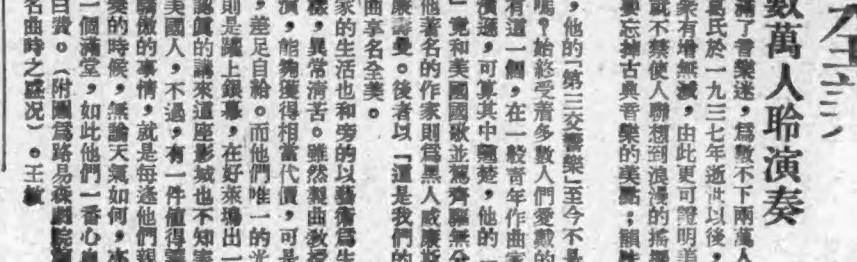 數萬人聆演奏
滿了音樂迷，爲數不下兩萬人
氏於一九三七年逝世以後，
衆有增無減，由此更可證明美
就不禁使人聯想到浪漫的搖擺
忘掉古典音樂的美點；韻味
，他的「第三交響樂」至今不是
嗎？始終受着多數人們愛戴的
有這一個，在一般青年作曲家
演遜，可算其中翹楚，他的「
」竟和美國國歌並駕齊驅無分
他著名的作家則爲黑人威廉斯
廉詩曼。後者以「這是我們的
曲享名全美。
家的生活也和旁的以藝術爲生
樣，異常清苦。雖然製曲敎授
演，能夠獲得相當代價，可是
，差足自給。而他們唯一的光
則是躍上銀幕，在好來塢出一
認眞的講來這座影城也不知害
美國人，不過，有一件値得
驕傲的事情，就是每逢他們親
奏的時候，無論天氣如何，
一個滿堂，如此他們一番心血
白費。（附圖爲路易森劇院
名曲時之盛况）。王敏